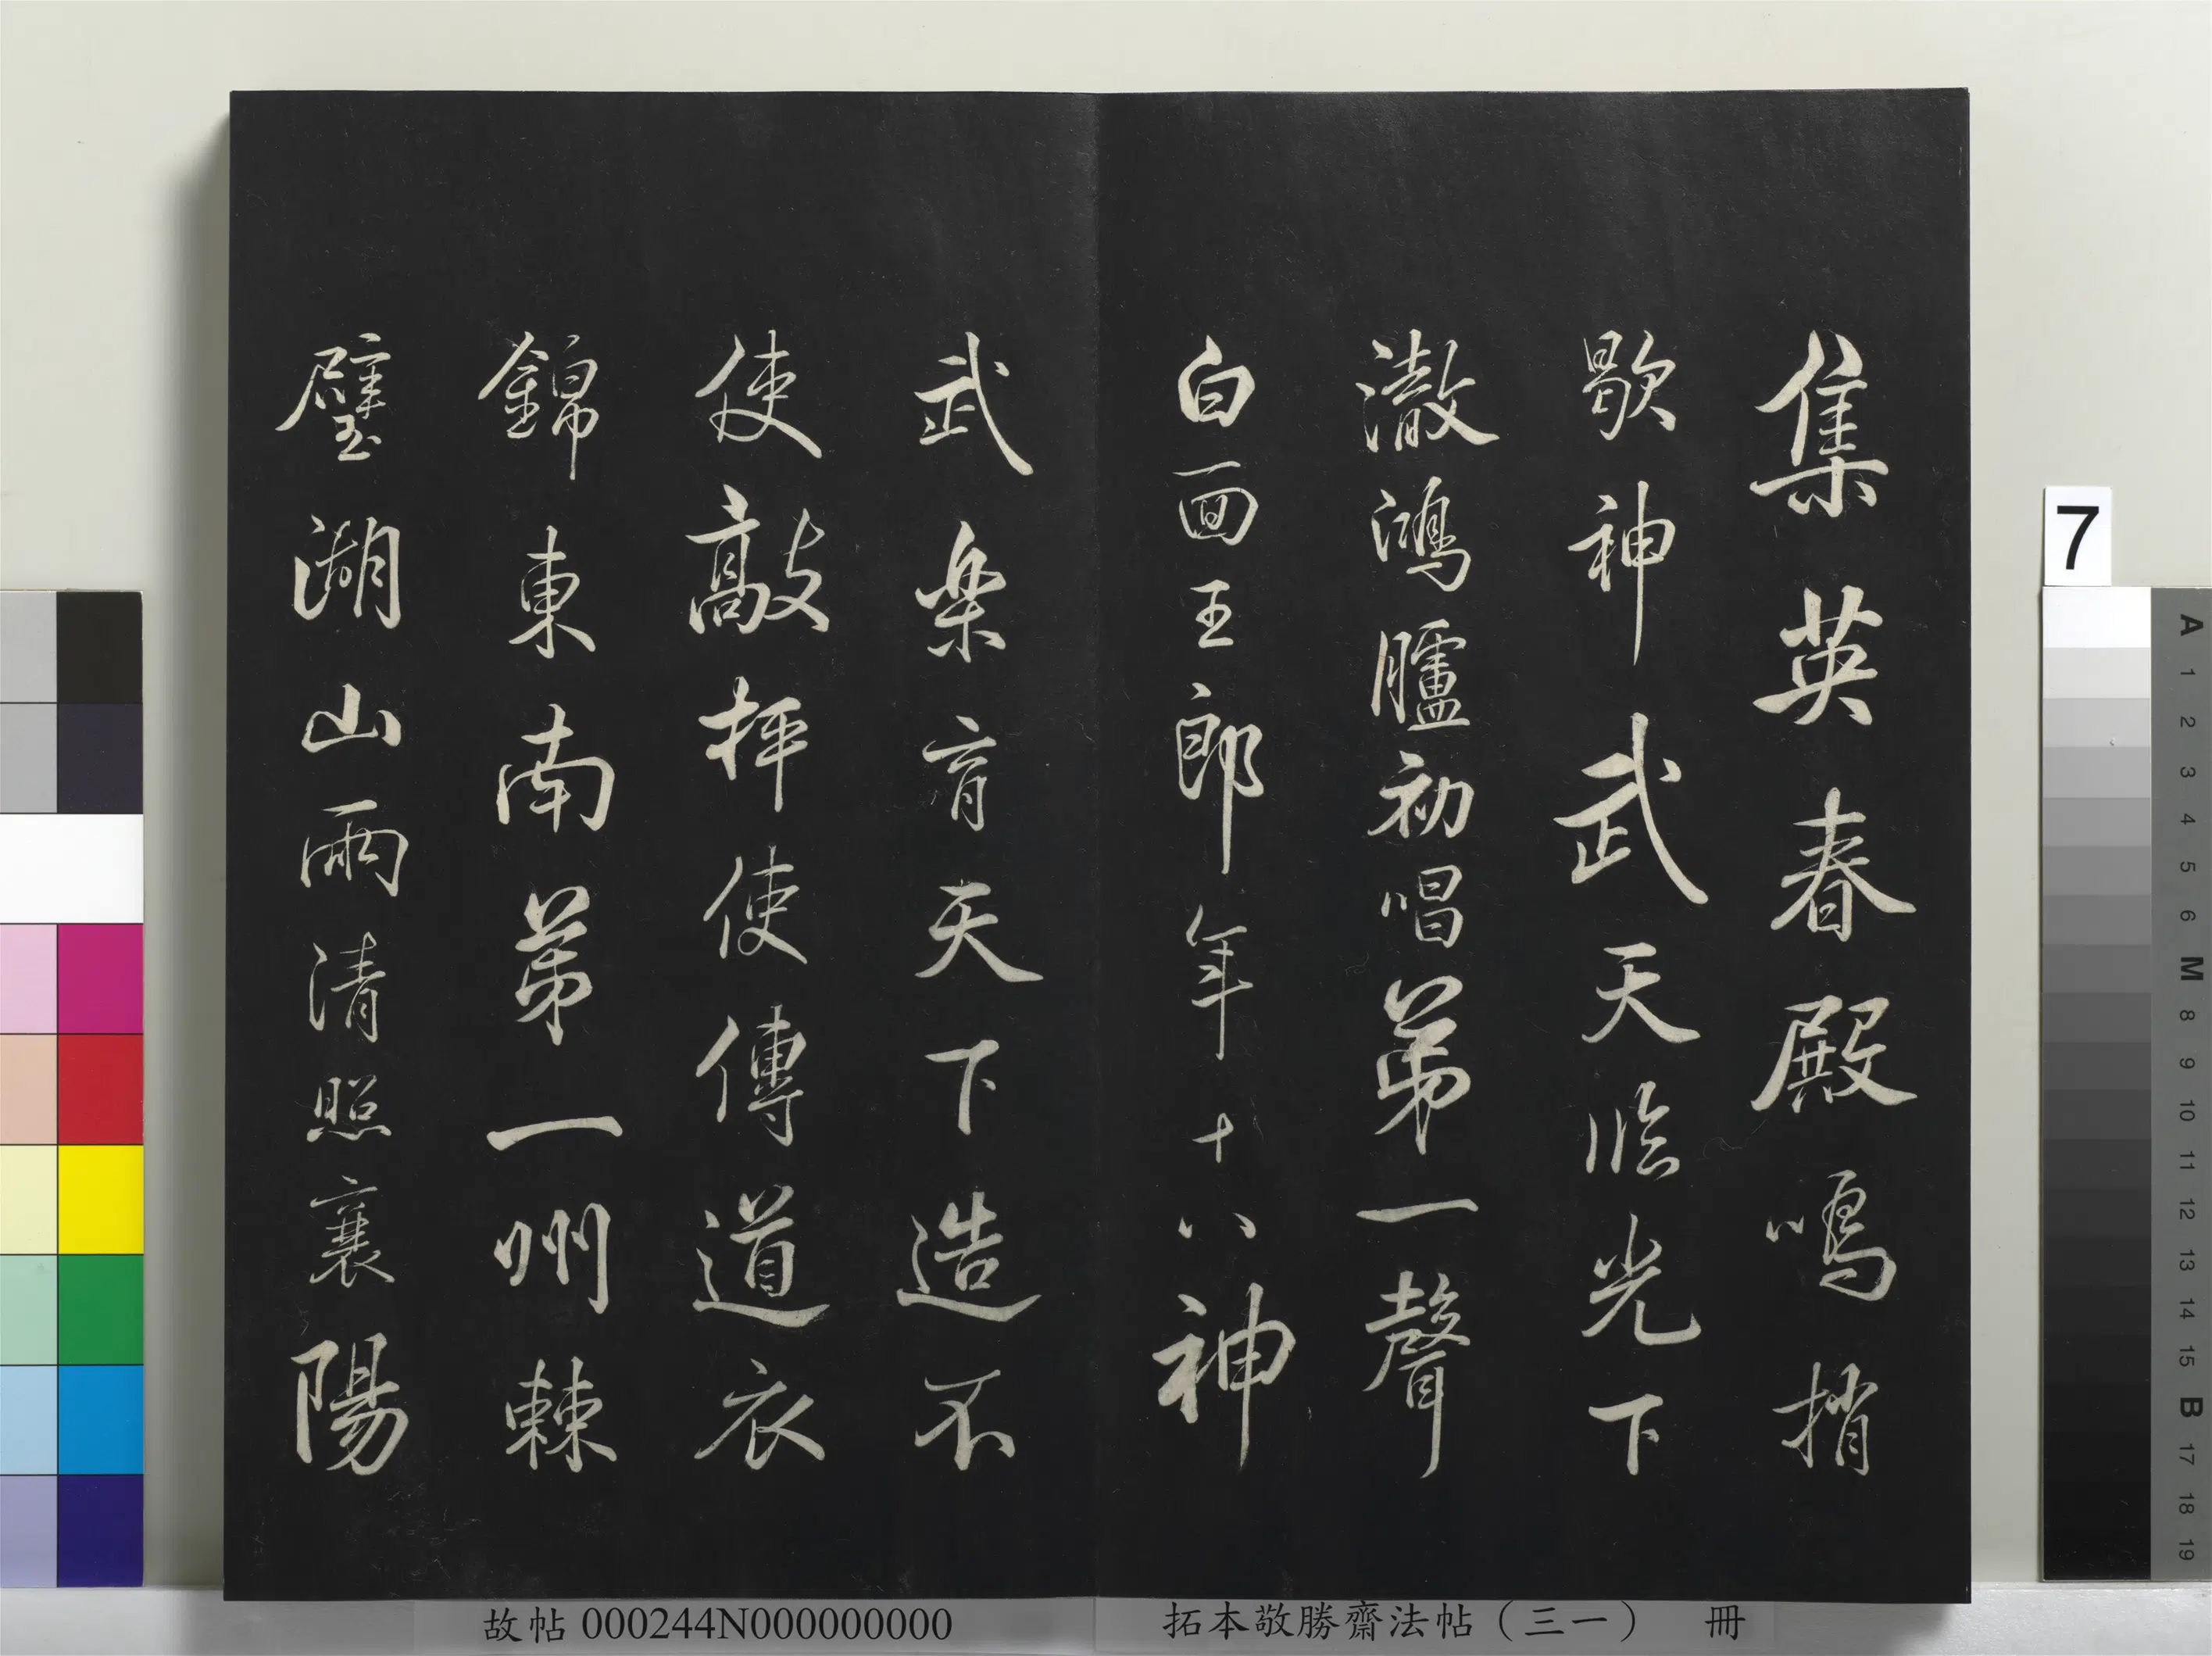 集英春殿鳴捎
歇神武天臨光下
澈鴻臚初唱苐一聲
白面王郎年十八神
武樂育天下造不
使敲抨使傳道衣
錦東南苐一州棘
璧湖山兩清照襄
陽
7
A 1 2 3 4 5 6 M 8 9 10 11 12 13 14 15 B 17 18 19
拓本敬勝齋法帖（三一） 冊
故帖 000244N000000000